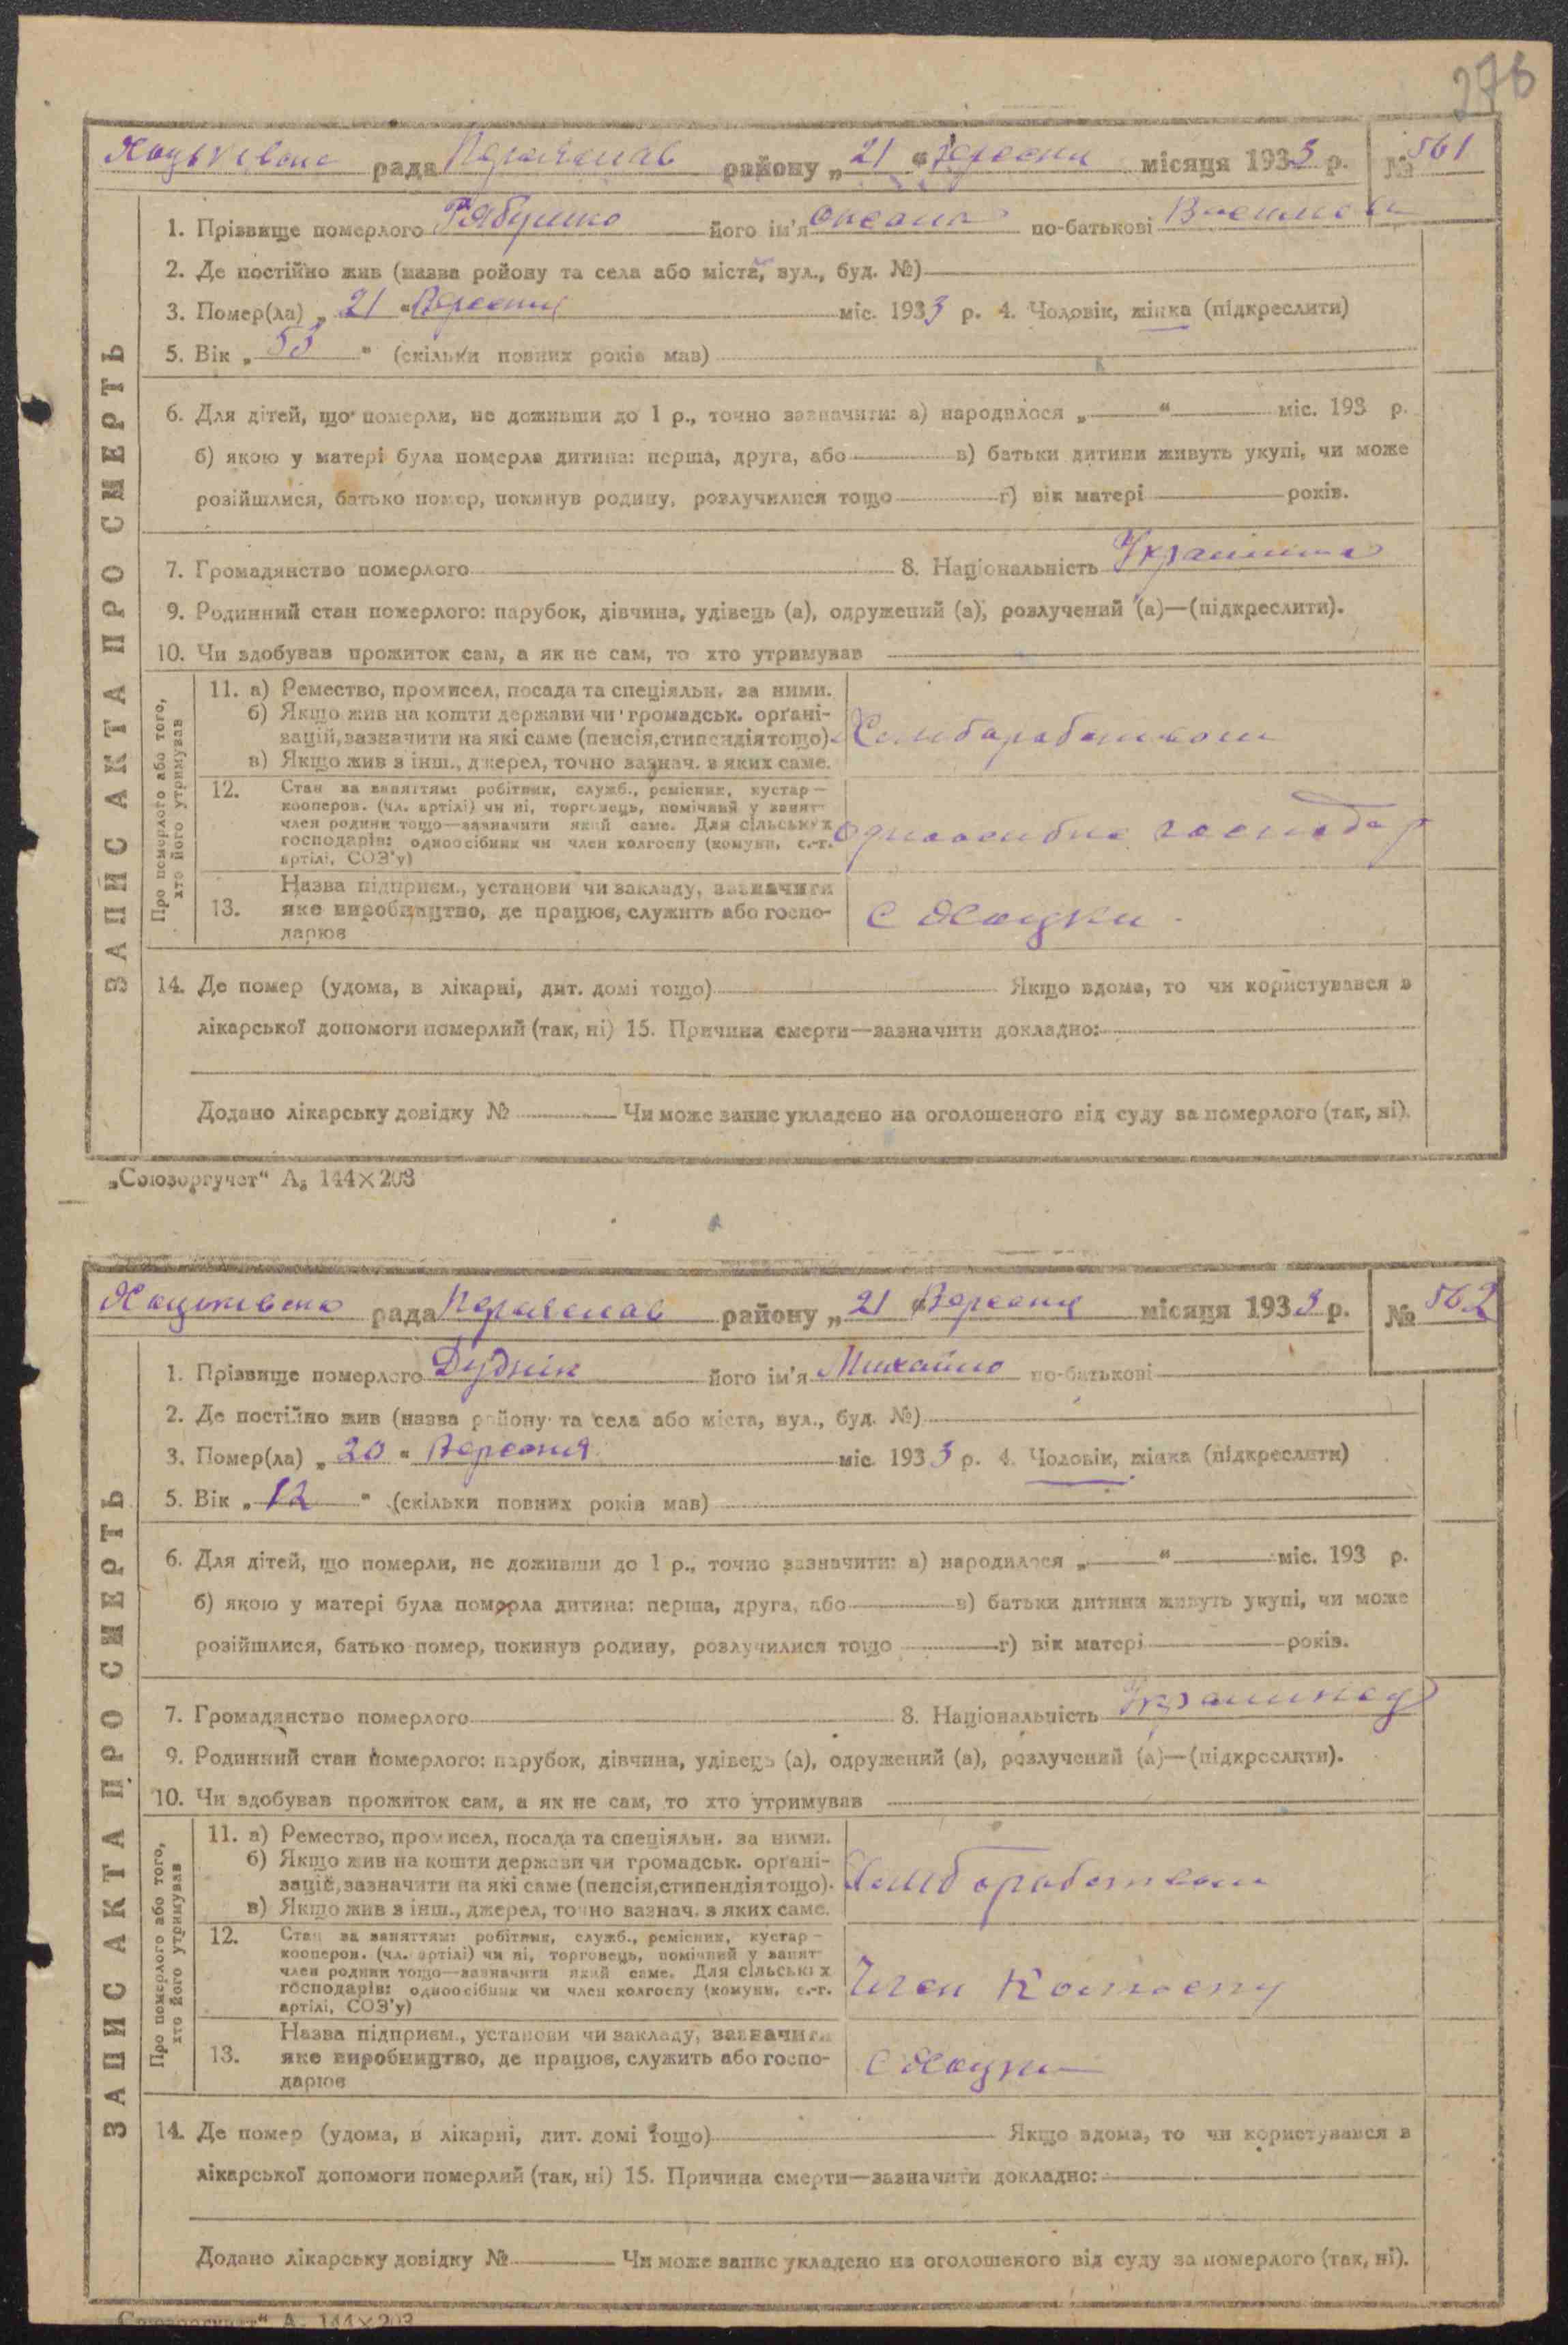 276
Хоцьківська рада Переяслав району „ 21 " Вересня місяця 1933 р. № 561
ЗАПИС АКТА ПРО СМЕРТЬ
1. Прізвище померлого Рябушко його ім'я Оксана по-батькові
2. Де постійно жив (назва ройону та села або міста, вул., буд. №)
3. Помер(ла) „ 21 " Вересня міс. 1933 р. 4. Чоловік, жінка (підкреслити)
5. Вік „ 53 " (скільки повних років мав)
6. Для дітей, що померли, не доживши до 1 р., точно зазначити: а) народилося „ " міс. 193 р.
б) якою у матері була померла дитина: перша, друга, або в) батьки дитини живуть укупі, чи може
розійшлися, батько помер, покинув родину, розлучилися тощо г) вік матері років.
7. Громадянство померлого 8. Національність Українка
9. Родинний стан померлого: парубок, дівчина, удівець (а), одружений (а), розлучений (а)—(підкреслити).
10. Чи здобував прожиток сам, а як не сам, то хто утримував
Про померлого або того, хто його утримував
11. а) Ремество, промисел, посада та спеціяльн. за ними.
б) Якщо жив на кошти держави чи громадськ. орґані-
зацій, зазначити на які саме (пенсія, стипендія тощо). Хлиборобством
в) Якщо жив з інш., джерел, точно зазнач. з яких саме.
12. Стан за заняттям: робітник, служб., ремісник, кустар—
кооперов. (чл. артілі) чи ні, торговець, помічний у занят-
член родини тощо—зазначити який саме. Для сільських
господарів: одноосібник чи член колгоспу (комуни, с.-г.
артілі, СОЗ'у) одноосибне господар
Назва підприєм., установи чи закладу, зазначити
13. яке виробництво, де працює, служить або госпо-
дарює с Хоцки
14. Де помер (удома, в лікарні, дит. домі тощо) Якщо вдома, то чи користувався з
лікарської допомоги померлий (так, ні) 15. Причина смерти—зазначити докладно:
Додано лікарську довідку № Чи може запис укладено на оголошеного від суду за померлого (так, ні).
„Союзоргучет" А₅ 144×203
Хоцьківська рада Переяслав району „ 21 " Вересня місяця 1933 р. № 562
ЗАПИС АКТА ПРО СМЕРТЬ
1. Прізвище померлого Дуднік його ім'я Михайло по-батькові
2. Де постійно жив (назва району та села або міста, вул., буд. №)
3. Помер(ла) „ 20 " Вересня міс. 1933 р. 4. Чоловік, жінка (підкреслити)
5. Вік „ 12 " (скільки повних років мав)
6. Для дітей, що померли, не доживши до 1 р., точно зазначити: а) народилося „ " міс. 193 р.
б) якою у матері була померла дитина: перша, друга, або в) батьки дитини живуть укупі, чи може
розійшлися, батько помер, покинув родину, розлучилися тощо г) вік матері років.
7. Громадянство померлого 8. Національність Украинец
9. Родинний стан померлого: парубок, дівчина, удівець (а), одружений (а), розлучений (а)—(підкреслити).
10. Чи здобував прожиток сам, а як не сам, то хто утримував
Про померлого або того, хто його утримував
11. а) Ремество, промисел, посада та спеціяльн. за ними.
б) Якщо жив на кошти держави чи громадськ. орґані-
зацій, зазначити на які саме (пенсія, стипендія тощо). Хлиборобством
в) Якщо жив з інш., джерел, точно зазнач. з яких саме.
12. Стан за заняттям: робітник, служб., ремісник, кустар—
кооперов. (чл. артілі) чи ні, торговець, помічний у занят-
член родини тощо—зазначити який саме. Для сільських
господарів: одноосібник чи член колгоспу (комуни, с.-г.
артілі, СОЗ'у) Член Колгоспу
Назва підприєм., установи чи закладу, зазначити
13. яке виробництво, де працює, служить або госпо-
дарює с Хоцки
14. Де помер (удома, в лікарні, дит. домі тощо) Якщо вдома, то чи користувався з
лікарської допомоги померлий (так, ні) 15. Причина смерти—зазначити докладно:
Додано лікарську довідку № Чи може запис укладено на оголошеного від суду за померлого (так, ні).
„Союзоргучет" А₅ 144×203